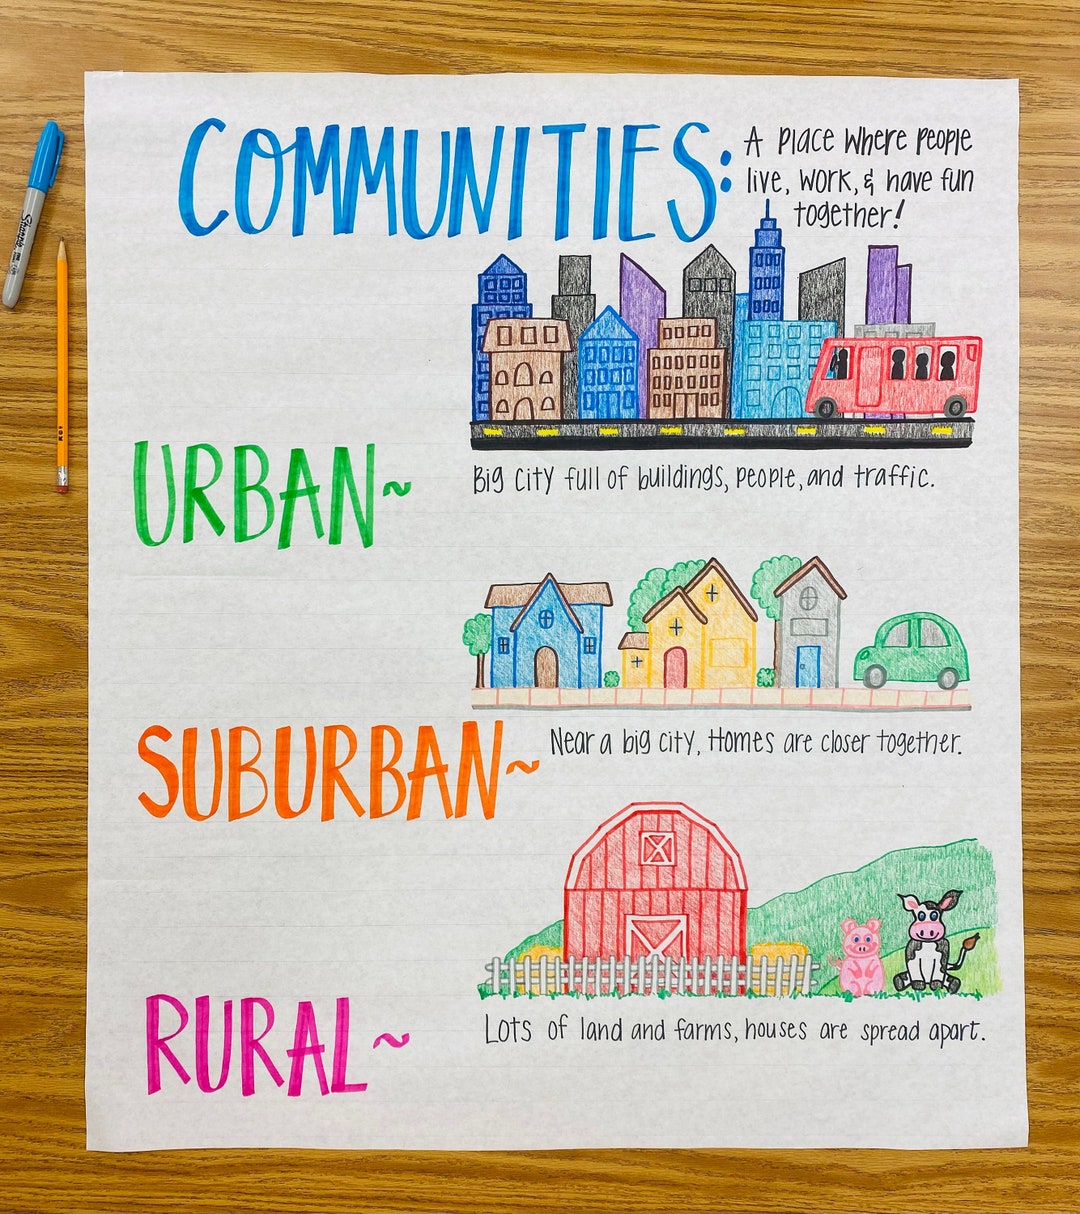 COMMUNITIES: A Place where people
live, work, & have fun
together!
Big city full of buildings, people, and traffic.
URBAN~
Near a big city, Homes are closer together.
SUBURBAN~
Lots of land and farms, houses are spread apart.
RURAL~
Sharpie